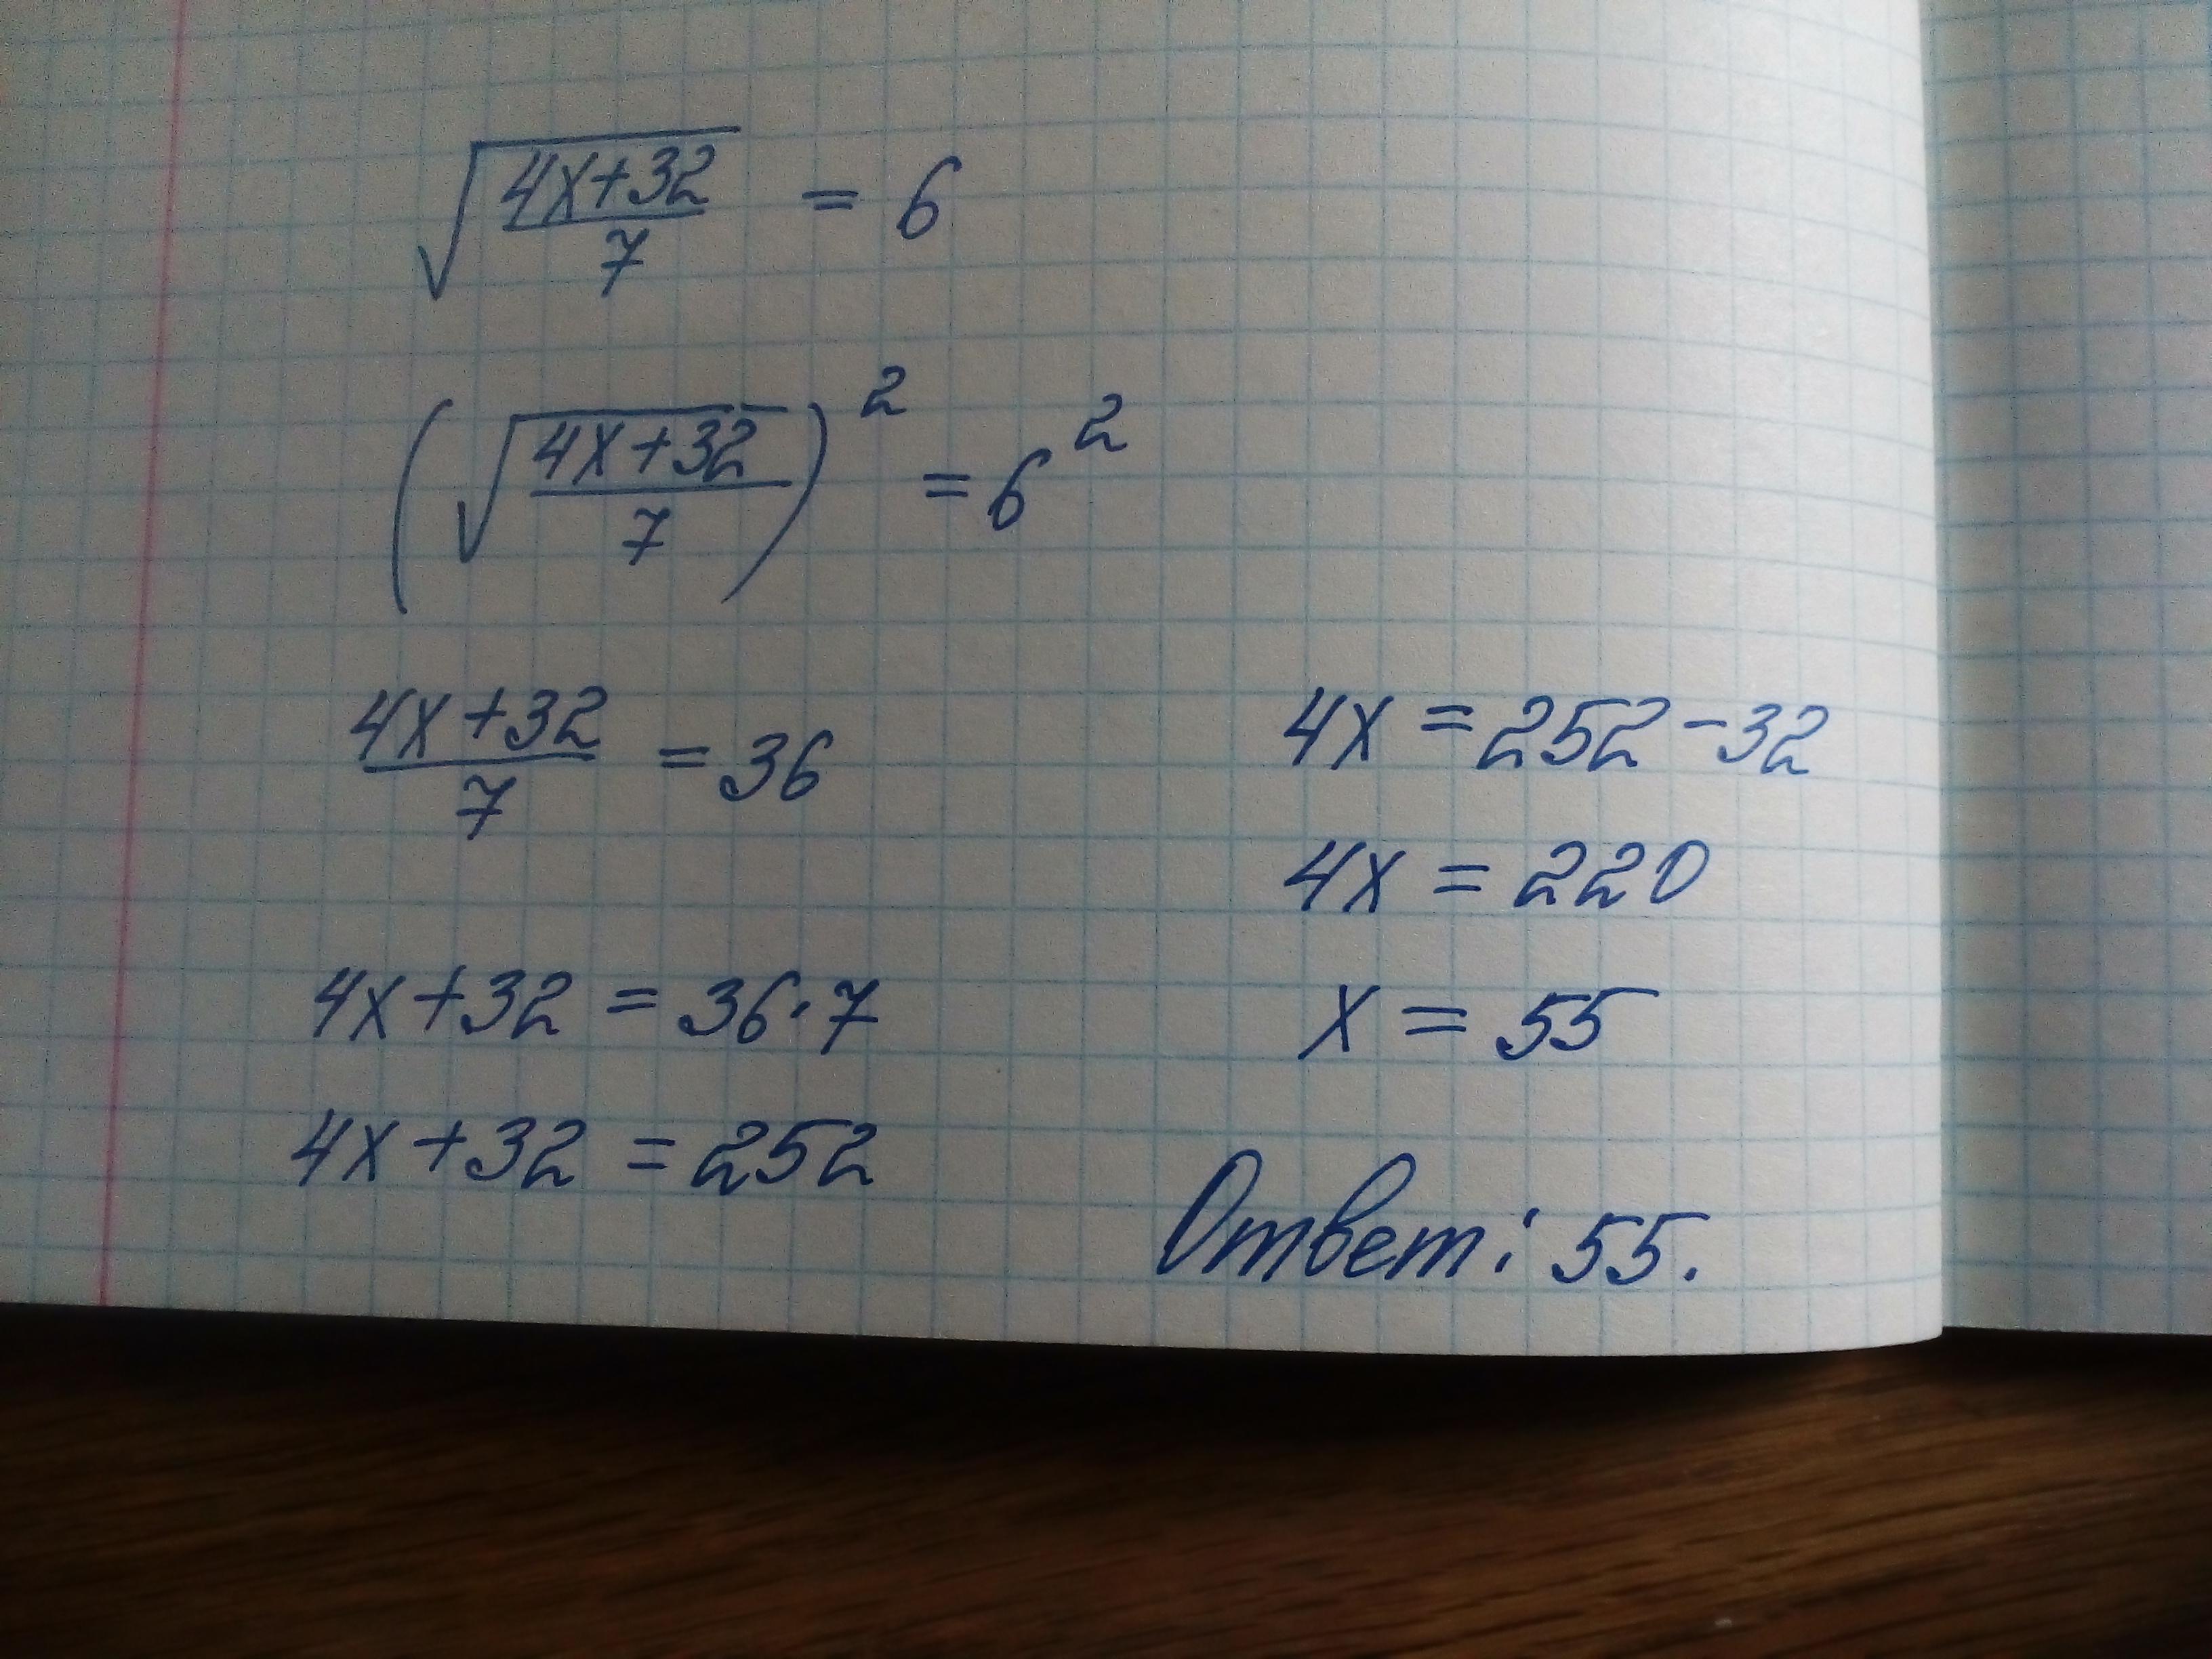 √((4x+32)/7) = 6
(√((4x+32)/7))² = 6²
(4x+32)/7 = 36
4x+32 = 36·7
4x+32 = 252
4x = 252-32
4x = 220
x = 55
Ответ: 55.